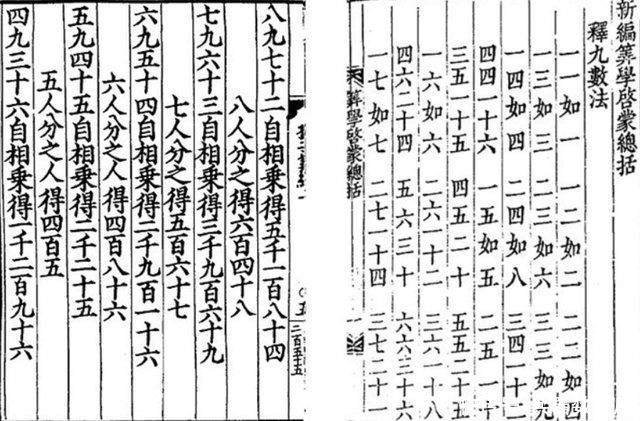 新編筭學啓蒙總括
釋九數法
一一如一 一二如二 二二如四
一三如三 二三如六 三三如九
一四如四 二四如八 三四一十二
四四一十六 一五如五 二五一十
三五一十五 四五二十 五五二十五
一六如六 二六一十二 三六一十八
四六二十四 五六三十 六六三十六
一七如七 二七一十四 三七二十一
筭學啓蒙總括
八九七十二自相乘得五千一百八十四
八人分之得六百四十八
七九六十三自相乘得三千九百六十九
七人分之得五百六十七
六九五十四自相乘得二千九百一十六
六人分之人得四百八十六
五九四十五自相乘得二千二十五
五人分之人得四百五
四九三十六自相乘得一千二百九十六